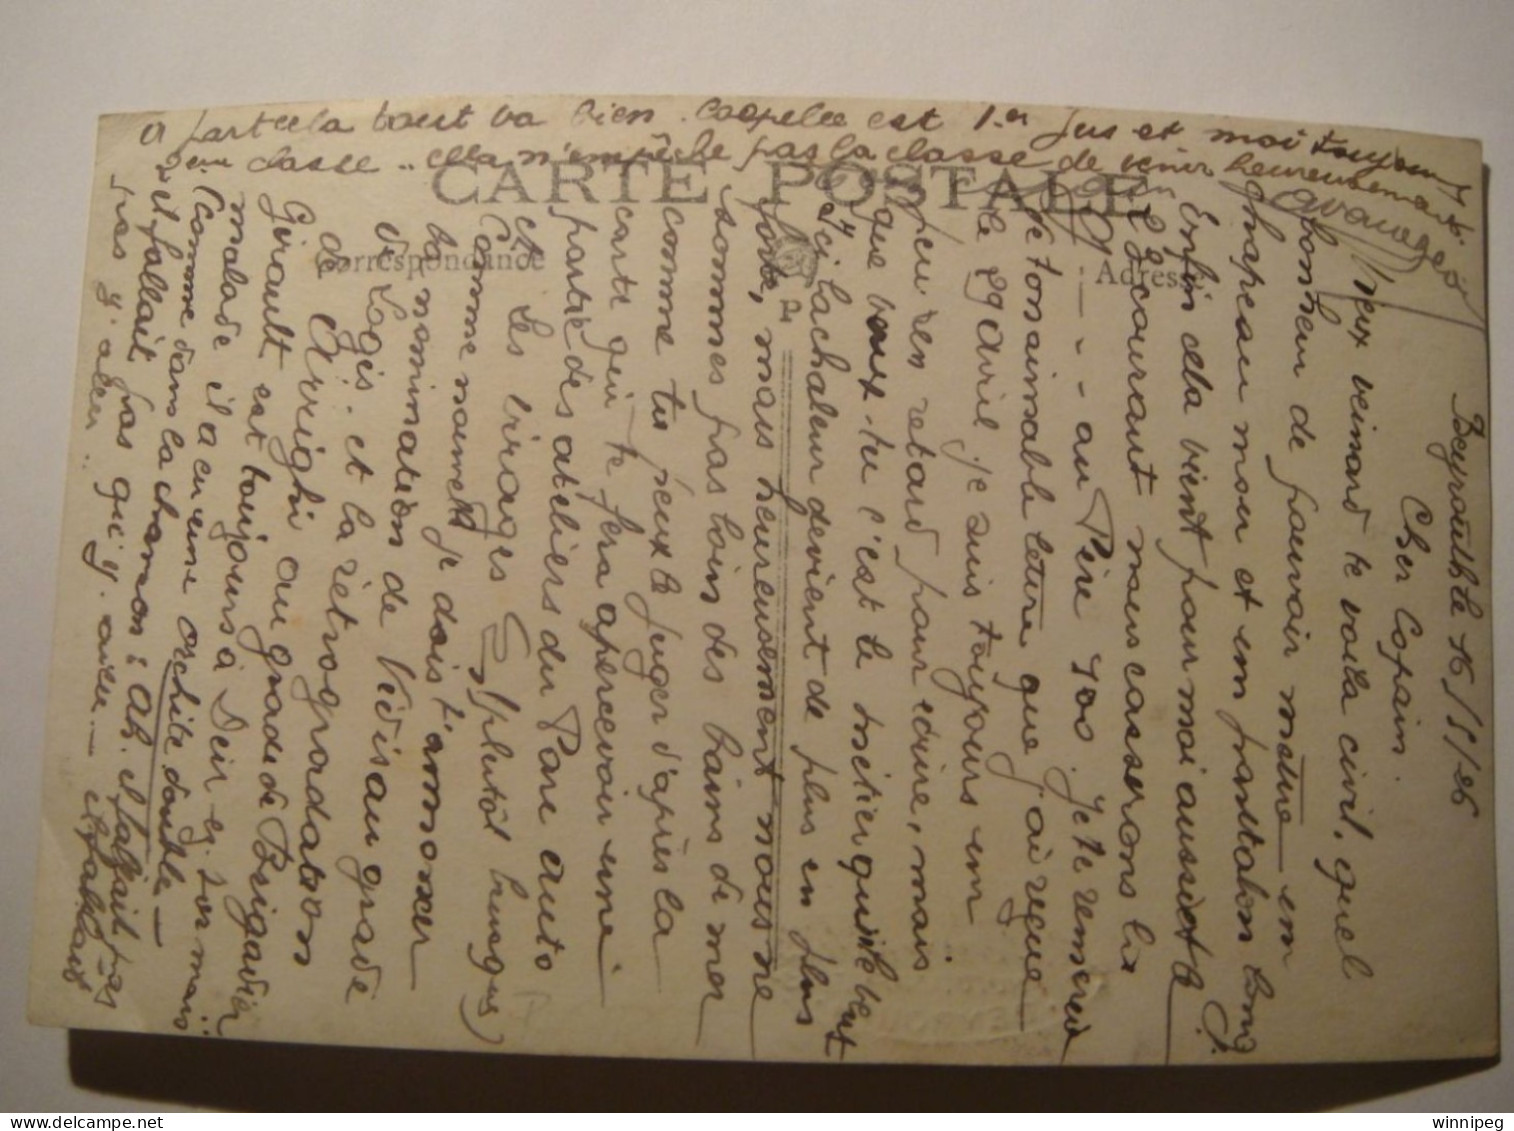 Beyrouth le 16/5/26
Cher Copain.
Vieux veinard te voilà civil, quel
bonheur de pouvoir mettre un
chapeau mou et un pantalon long
Enfin cela vient pour moi aussi et le
11 courant nous casserons la
- - - au Père 400. Je te remercie
de ton aimable lettre que j'ai reçue
le 29 avril je suis toujours un
peu en retard pour écrire, mais
que veux-tu c'est le métier qui le veut
Ici la chaleur devient de plus en plus
forte, mais heureusement nous ne
sommes pas loin des bains de mer
comme tu peux le juger d'après la
carte qui te fera apercevoir une
partie des ateliers du Parc auto
et les virages (plutôt brusques)
Comme nouvelle je dois t'annoncer
la nomination de Vidis au grade
de Logis. et la rétrogradation
de Arrighi au grade de Brigadier
Girault est toujours à Deir ez-zor mais
malade il a eu une orchite double -
(Comme dans la chanson : Ah. il fallait pas
il fallait pas qu'y. aille - il fallait
pas y. aller.
a part cela tout va bien. est 1er jus et moi toujours
2ème classe.. cela n'empêche pas la classe de venir heureusement.
CARTE POSTALE
Correspondance
Adresse
winnipeg